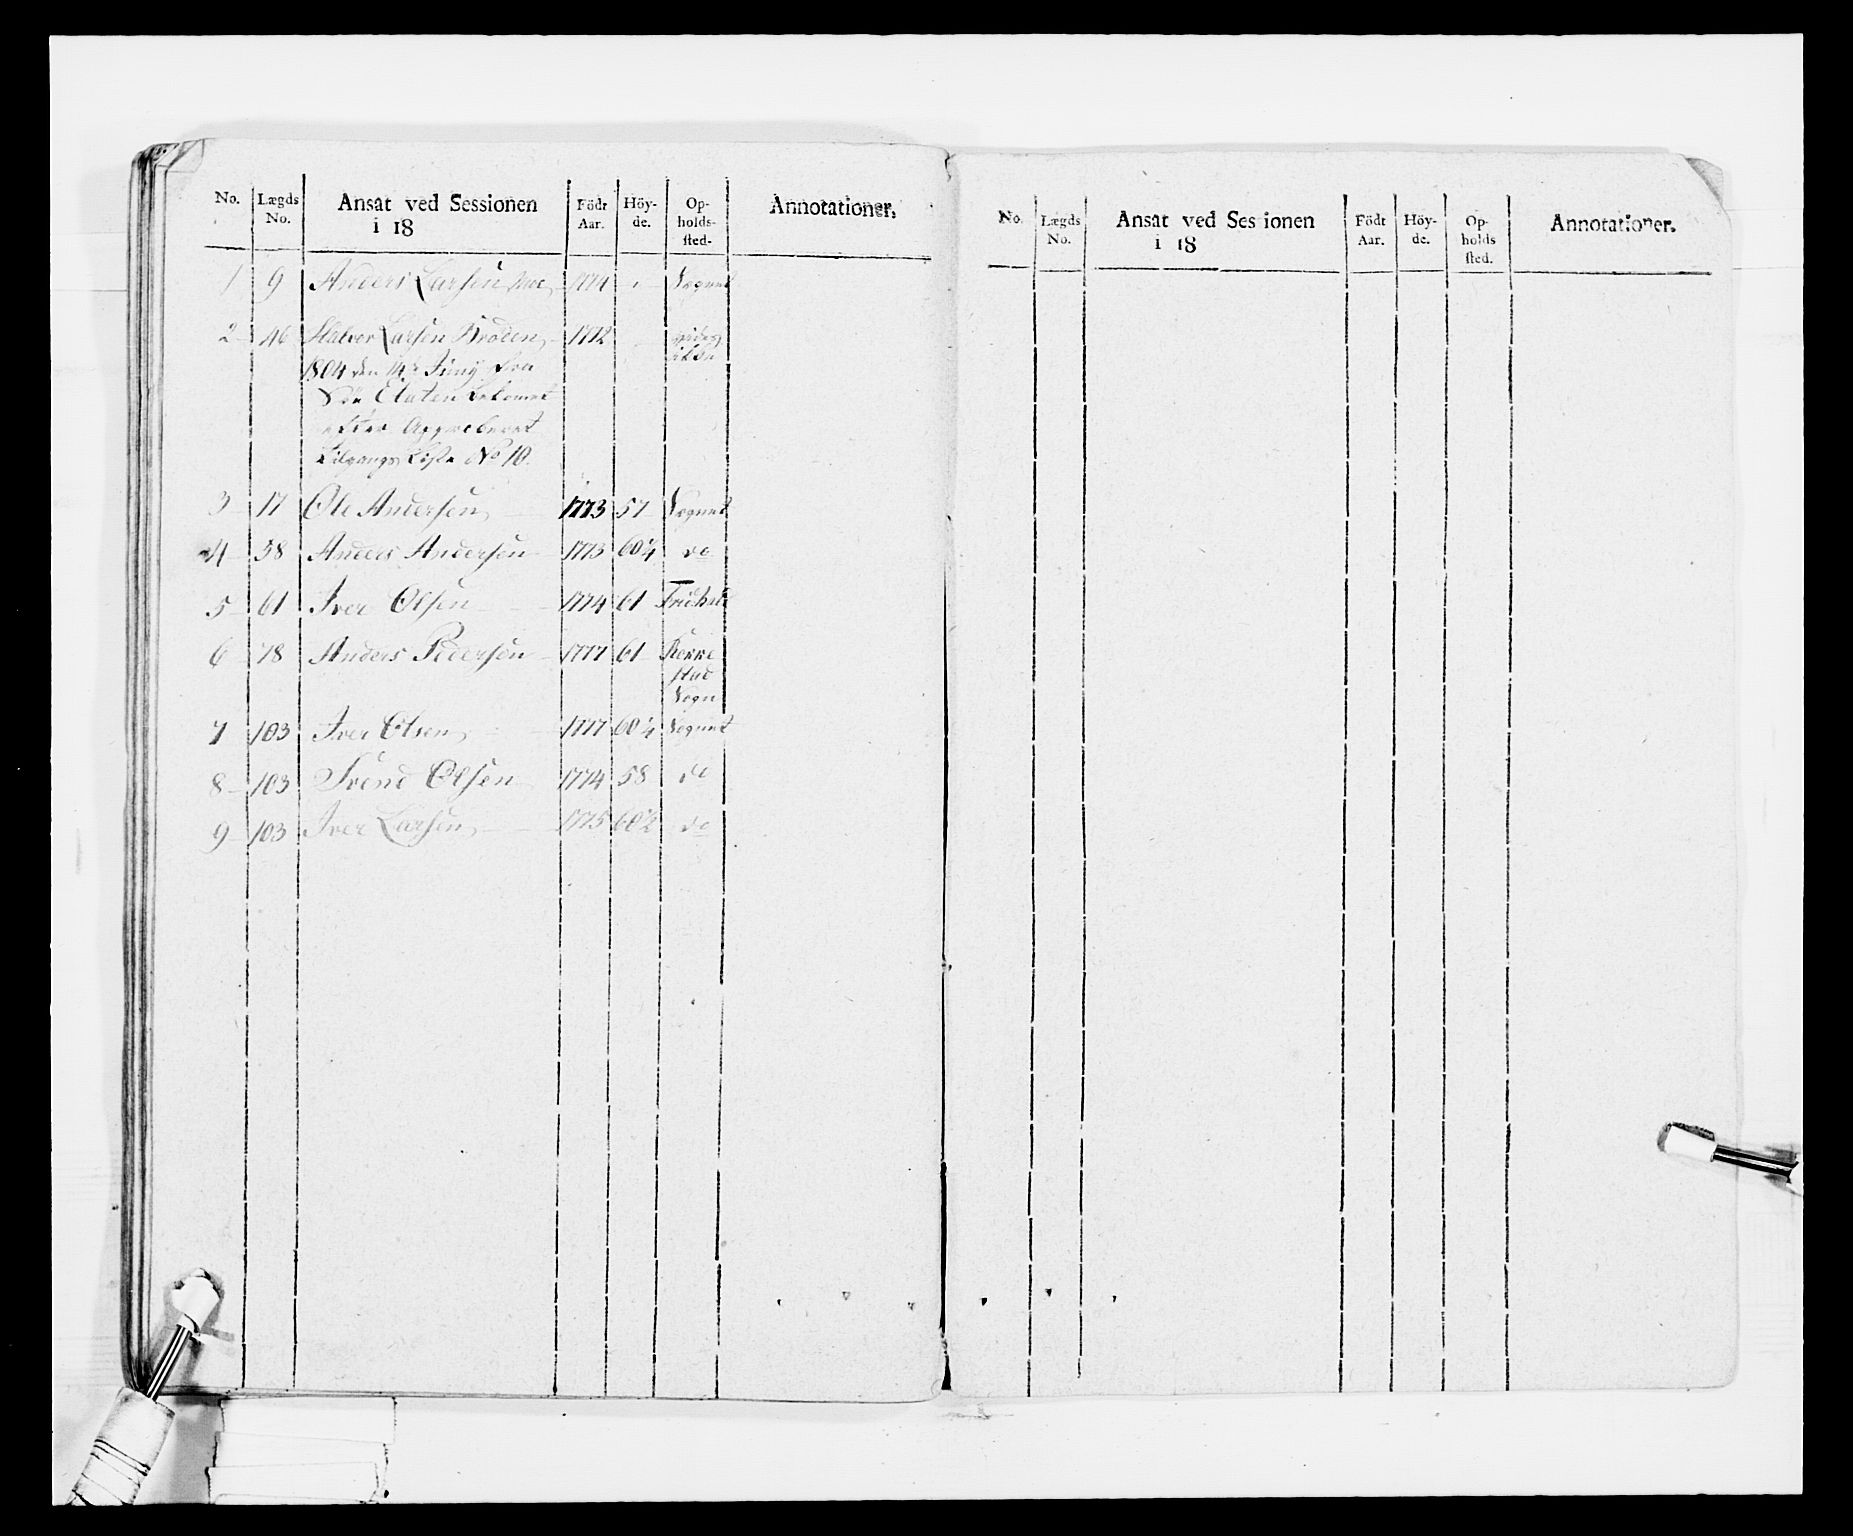 No. Lægds No. Ansat ved Sessionen i 18 Födt Aar. Höyde. Opholdssted. Annotationer.
1 9 Anders Larsen Moe 1774 Sognet
2 46 Halvor Larsen Braaten 1772
1804 den 14de Junij fra
Söe Etaten bekomet
efter Approberet
Tilgangs Liste No 10.
3 17 Ole Andersen 1773 57 Sognet
4 58 Anders Andersen 1773 60¼ do
5 61 Iver Olsen 1774 61 Fridhald
6 78 Anders Pedersen 1777 61 Rokke
stad
Sogn
7 103 Iver Olsen 1777 60¼ Sognet
8 103 Svend Olsen 1774 58 do
9 103 Iver Larsen 1775 60½ do
No. Lægds No. Ansat ved Sessionen i 18 Födt Aar. Höyde. Opholds sted. Annotationer.